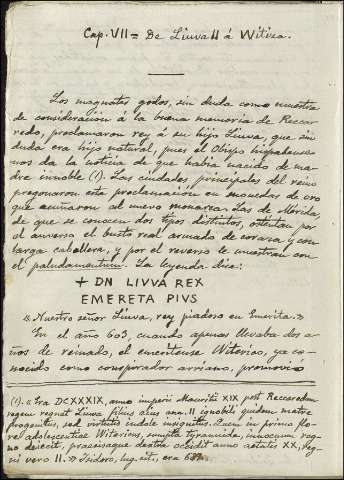 Cap. VII = De Liuva II á Witiza.
Los magnates godos, sin duda como muestra
de consideración á la buena memoria de Recar-
redo, proclamaron rey á su hijo Liuva, que sin
duda era hijo natural, pues el Obispo hispalense
nos da la noticia de que habia nacido de ma-
dre innoble (1). Las ciudades principales del reino
pregonaron esta proclamación en monedas de oro
que acuñaron al nuevo monarca. Las de Mérida,
de que se conocen dos tipos distintos, ostentan por
el anverso el busto real armado de coraza y con
larga caballera, y por el reverso le muestran con
el paludamentum. La leyenda dice:
+ DN LIVVA REX
EMERETA PIVS
« Nuestro señor Liuva, rey piadoso en Emerita. »
En el año 603, cuando apenas llevaba dos a-
ños de reinado, el emeritense Witerico, ya co-
nocido como conspirador arriano, promovió
(1). « Era DCXXXIX, anno imperii Mauritii XIX post Reccaredum
regem regnat Liuva filius ejus ann. II ignobili quidem matre
progenitus, sed virtutis indole insignitus. Quem in primo flo-
re adolescentiae Witericus, sumpta tyrannide, innocuum reg-
no dejecit, praecisaque dextra occidit anno aetatis XX, reg-
ni vero II. » Isidoro, lug. cit., era